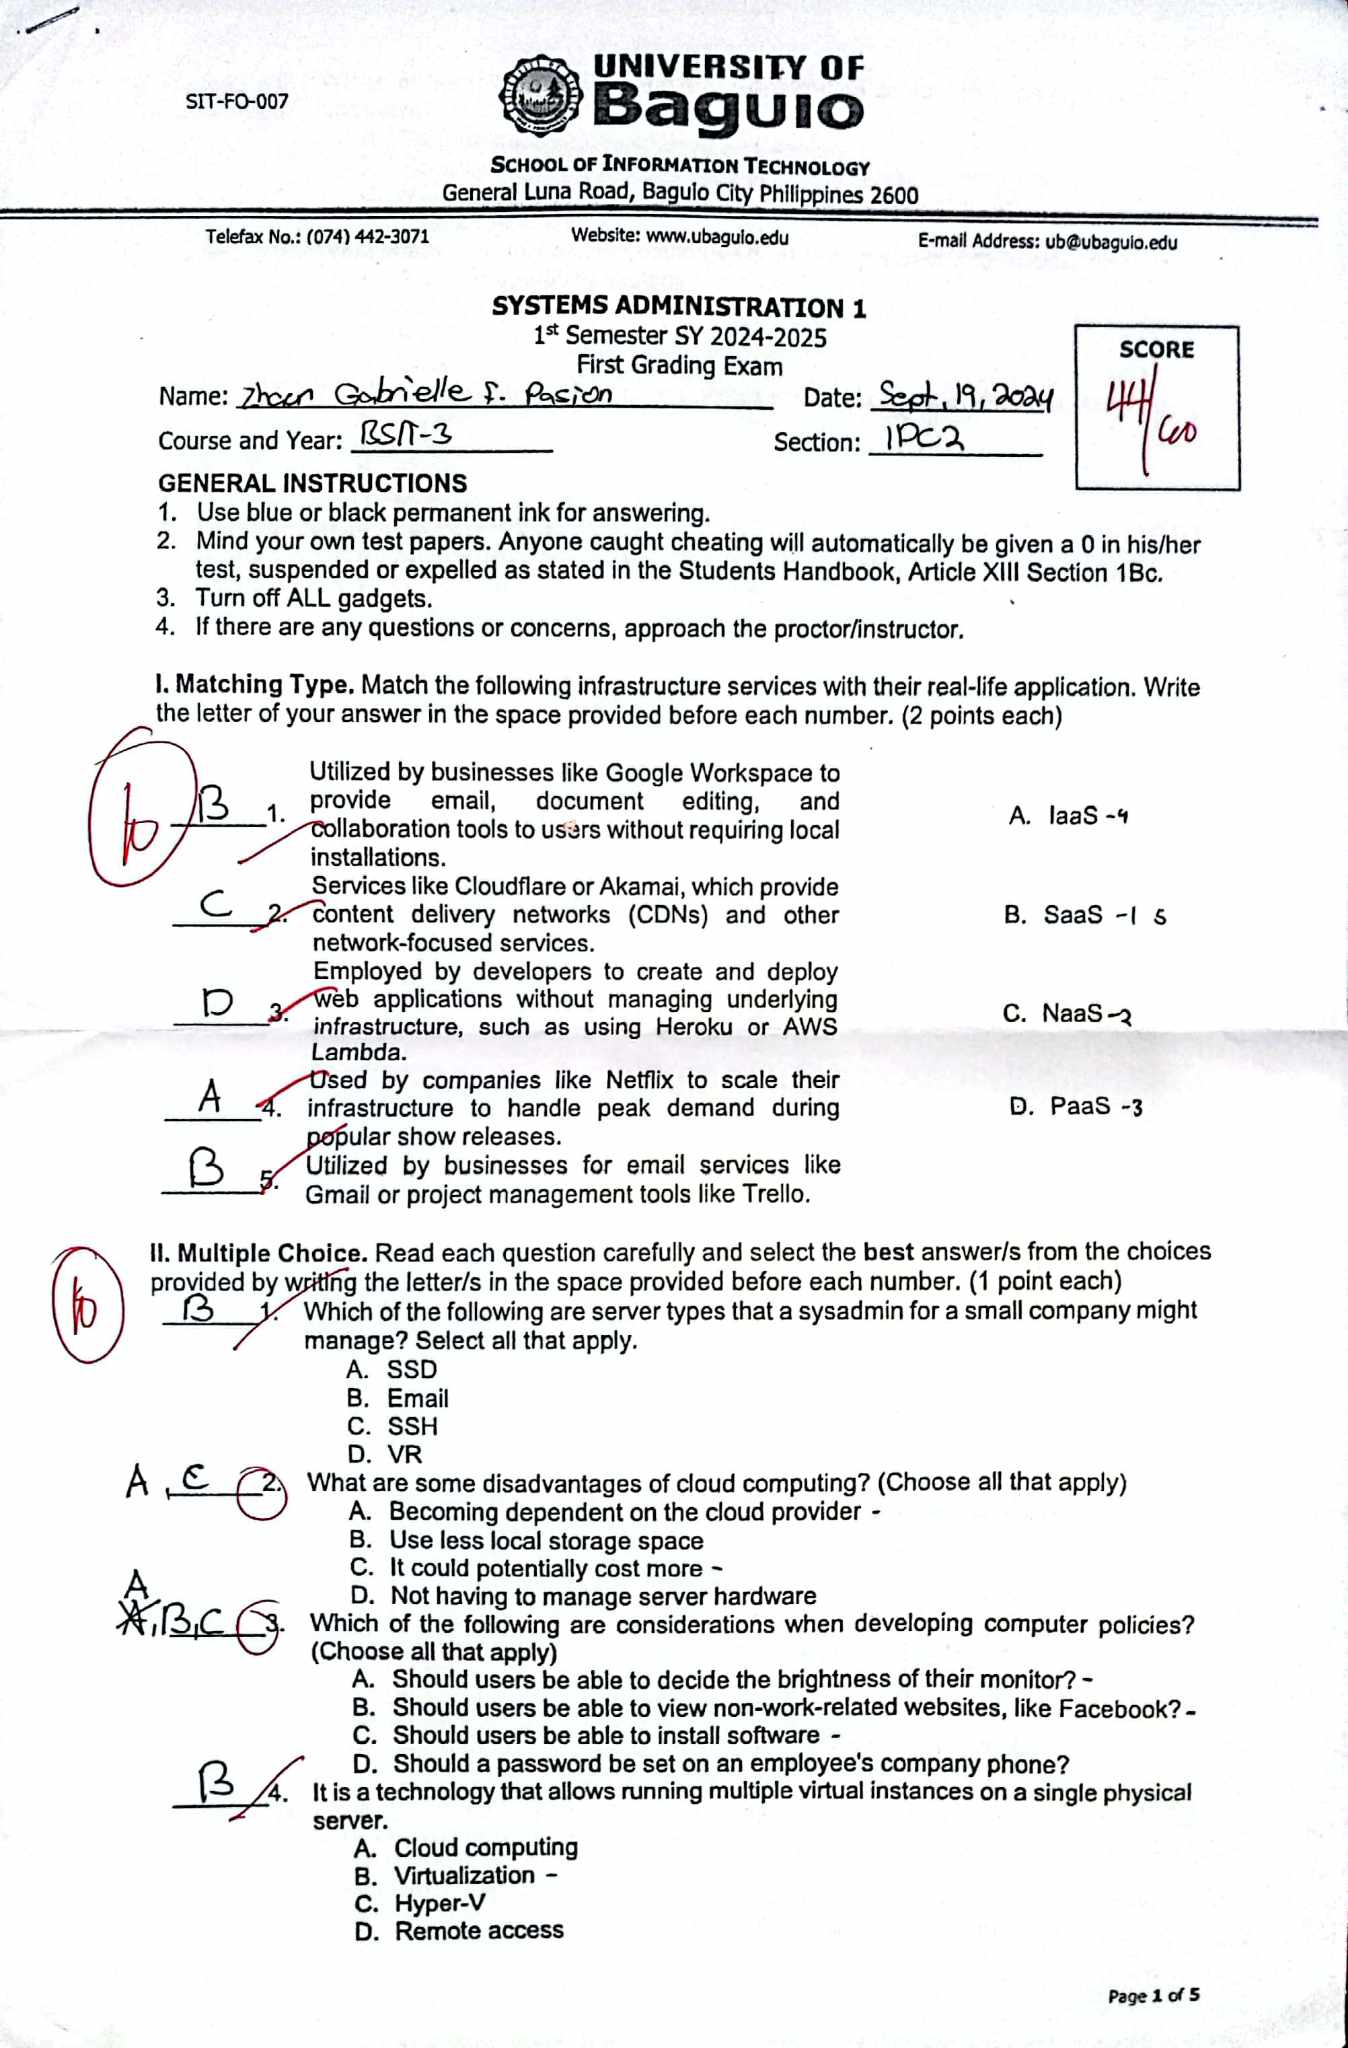 SIT-FO-007
UNIVERSITY OF
Baguio
SCHOOL OF INFORMATION TECHNOLOGY
General Luna Road, Baguio City Philippines 2600
Telefax No.: (074) 442-3071 Website: www.ubaguio.edu E-mail Address: ub@ubaguio.edu
SYSTEMS ADMINISTRATION 1
1st Semester SY 2024-2025
First Grading Exam
SCORE
44/60
Name: Gabrielle Pasion Date: Sept. 19, 2024
Course and Year: BSIT-3 Section: IPC2
GENERAL INSTRUCTIONS
1. Use blue or black permanent ink for answering.
2. Mind your own test papers. Anyone caught cheating will automatically be given a 0 in his/her
test, suspended or expelled as stated in the Students Handbook, Article XIII Section 1Bc.
3. Turn off ALL gadgets.
4. If there are any questions or concerns, approach the proctor/instructor.
I. Matching Type. Match the following infrastructure services with their real-life application. Write
the letter of your answer in the space provided before each number. (2 points each)
10
B 1. Utilized by businesses like Google Workspace to
provide email, document editing, and
collaboration tools to users without requiring local
installations.
A. IaaS -4
C 2. Services like Cloudflare or Akamai, which provide
content delivery networks (CDNs) and other
network-focused services.
B. SaaS -1 5
D 3. Employed by developers to create and deploy
web applications without managing underlying
infrastructure, such as using Heroku or AWS
Lambda.
C. NaaS -2
A 4. Used by companies like Netflix to scale their
infrastructure to handle peak demand during
popular show releases.
D. PaaS -3
B 5. Utilized by businesses for email services like
Gmail or project management tools like Trello.
II. Multiple Choice. Read each question carefully and select the best answer/s from the choices
provided by writing the letter/s in the space provided before each number. (1 point each)
10
B 1. Which of the following are server types that a sysadmin for a small company might
manage? Select all that apply.
A. SSD
B. Email
C. SSH
D. VR
A, C 2. What are some disadvantages of cloud computing? (Choose all that apply)
A. Becoming dependent on the cloud provider -
B. Use less local storage space
C. It could potentially cost more -
D. Not having to manage server hardware
A
A,B,C 3. Which of the following are considerations when developing computer policies?
(Choose all that apply)
A. Should users be able to decide the brightness of their monitor? -
B. Should users be able to view non-work-related websites, like Facebook? -
C. Should users be able to install software -
D. Should a password be set on an employee's company phone?
B 4. It is a technology that allows running multiple virtual instances on a single physical
server.
A. Cloud computing
B. Virtualization -
C. Hyper-V
D. Remote access
Page 1 of 5